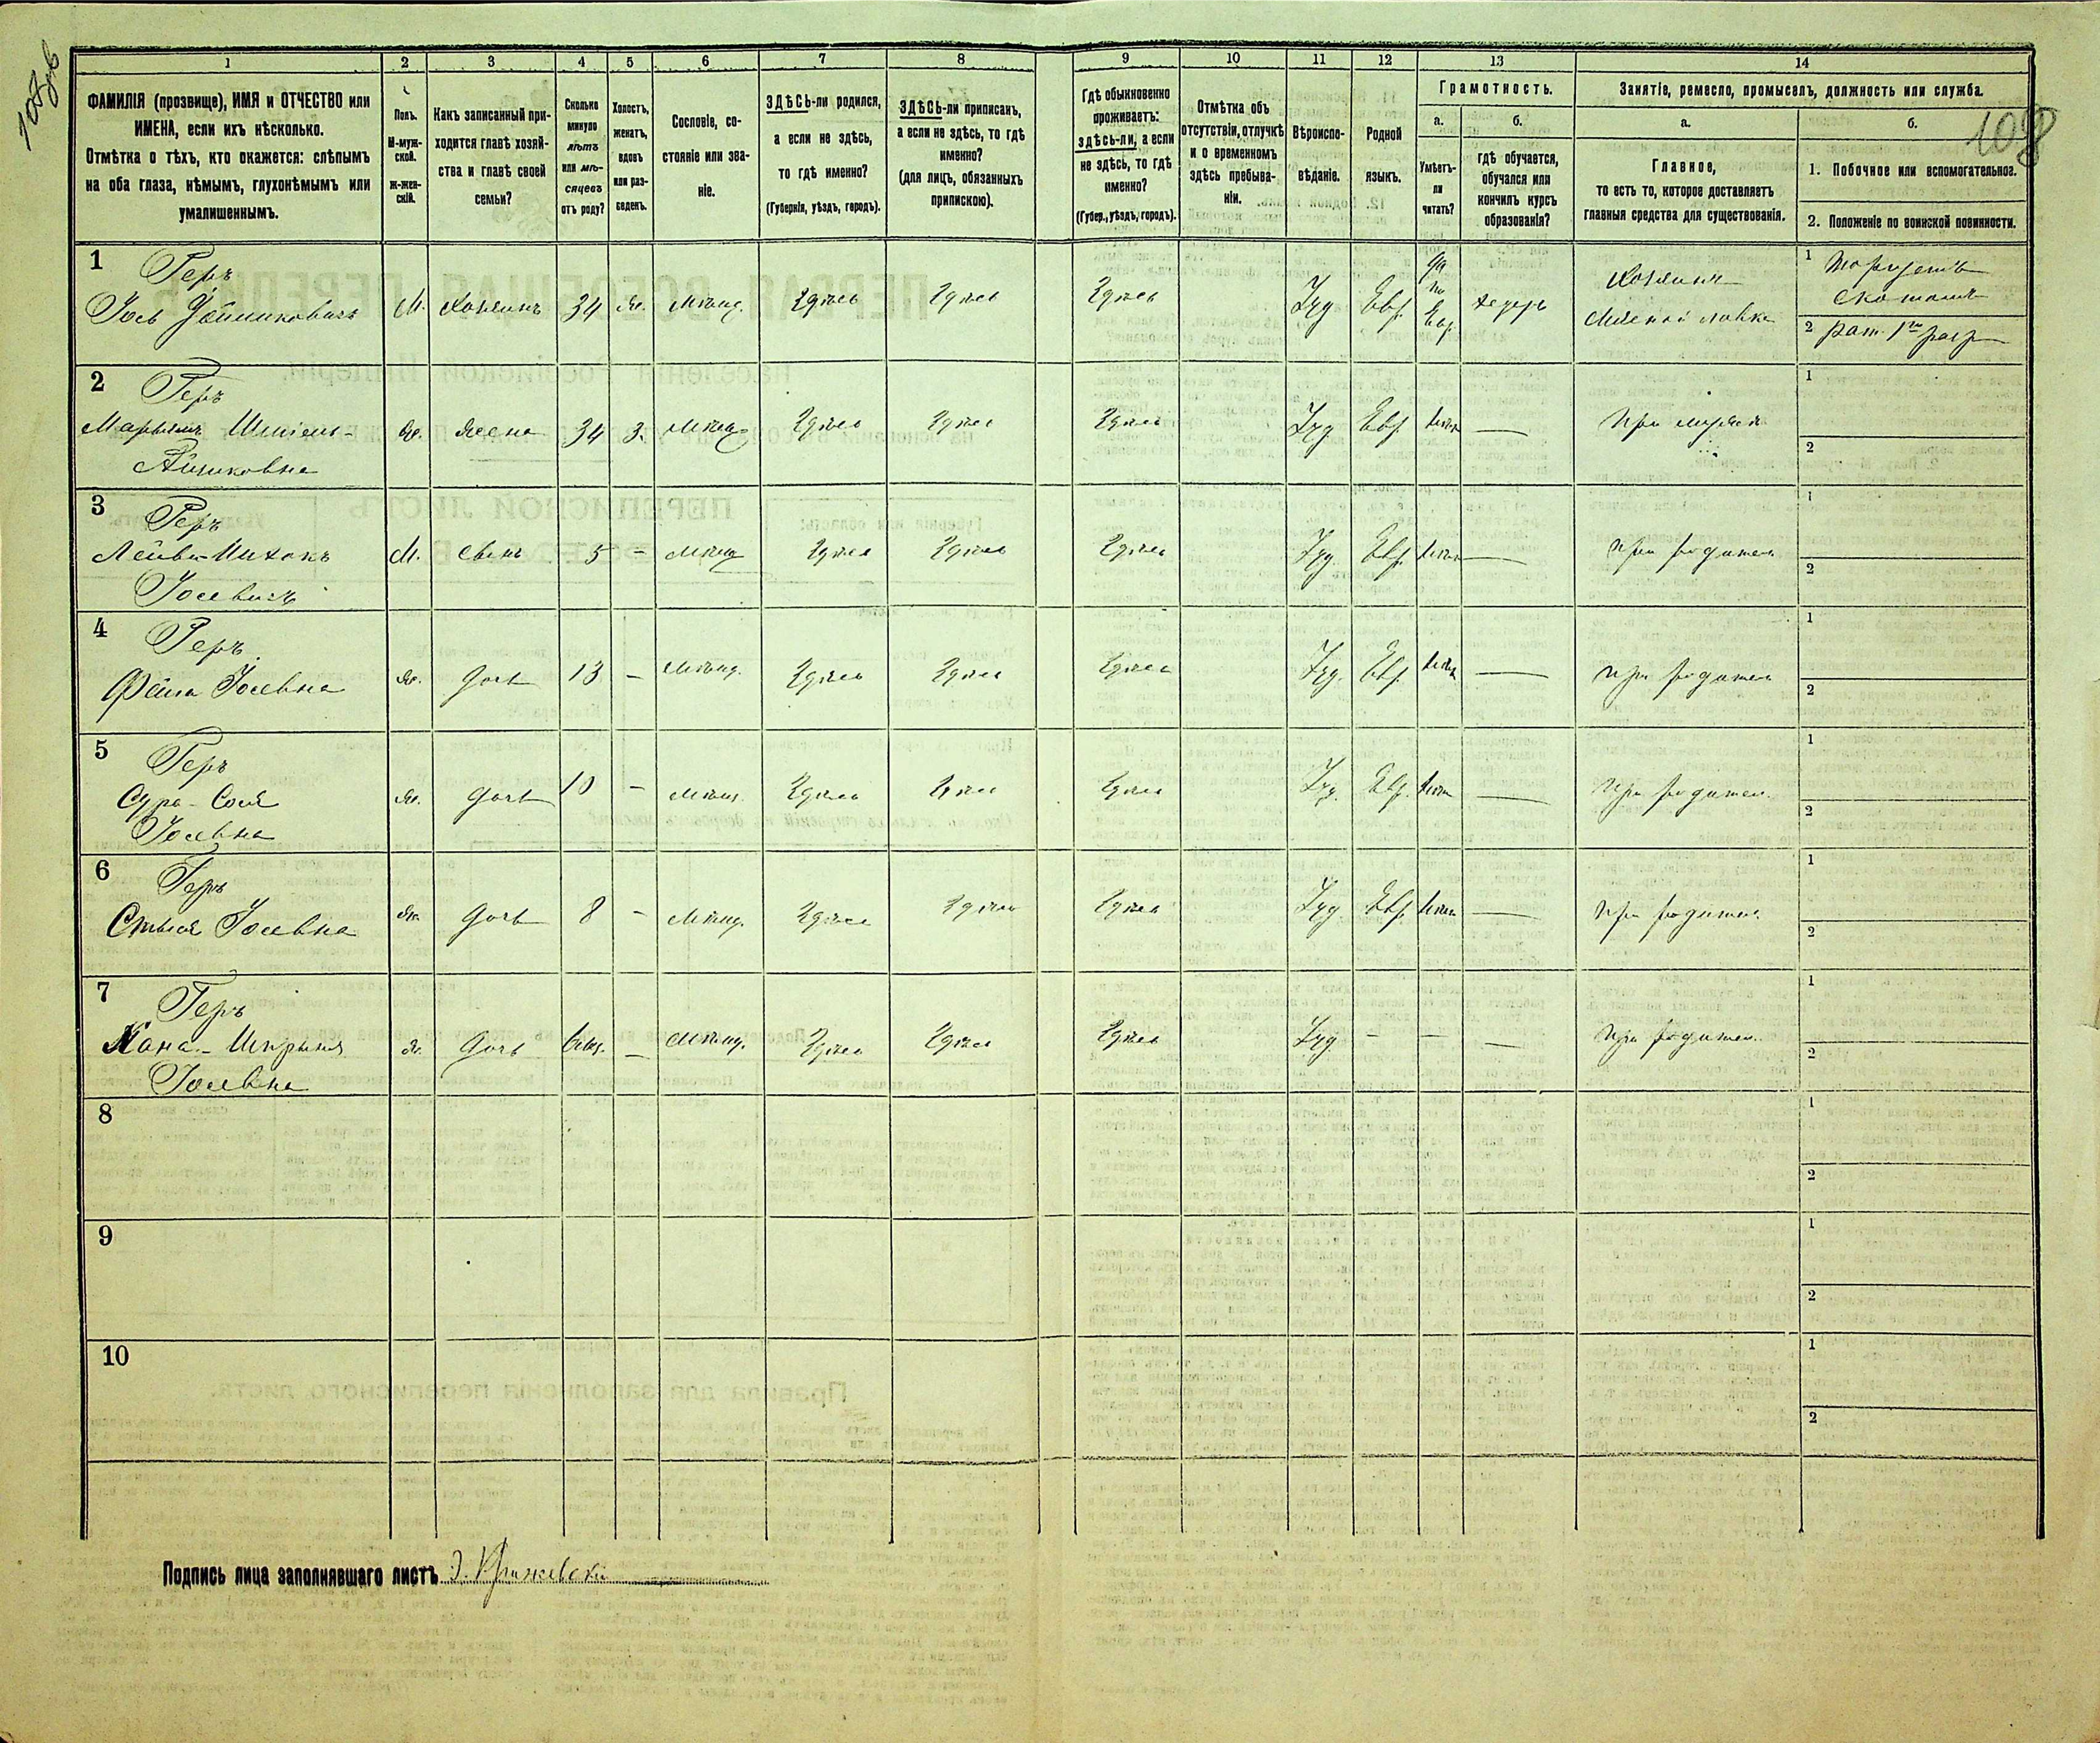 108
1
2
3
4
5
6
7
8
9
10
11
12
13
14
ФАМИЛІЯ (прозвище), ИМЯ и ОТЧЕСТВО или
ИМЕНА, если ихъ нѣсколько.
Отмѣтка о тѣхъ, кто окажется: слѣпымъ
на оба глаза, нѣмымъ, глухонѣмымъ или
умалишеннымъ.
Полъ.
М-муж-
ской.
ж-жен-
скій.
Какъ записанный при-
ходится главѣ хозяй-
ства и главѣ своей
семьи?
Сколько
минуло
лѣтъ
или мѣ-
сяцевъ
отъ роду?
Холостъ,
женатъ,
вдовъ
или раз-
веденъ.
Сословіе, со-
стояніе или зва-
ніе.
ЗДѢСЬ-ли родился,
а если не здѣсь,
то гдѣ именно?
(Губернія, уѣздъ, городъ).
ЗДѢСЬ-ли приписанъ,
а если не здѣсь, то гдѣ
именно?
(для лицъ, обязанныхъ
припискою).
Гдѣ обыкновенно
проживаетъ:
здѣсь-ли, а если
не здѣсь, то гдѣ
именно?
(Губер., уѣздъ, городъ).
Отмѣтка объ
отсутствіи, отлучкѣ
и о временномъ
здѣсь пребыва-
ніи.
Вѣроиспо-
вѣданіе.
Родной
языкъ.
Грамотность.
а.
Умѣетъ-
ли
читать?
б.
гдѣ обучается,
обучался или
кончилъ курсъ
образованія?
Занятіе, ремесло, промыселъ, должность или служба.
а.
Главное,
то есть то, которое доставляетъ
главныя средства для существованія.
б.
1. Побочное или вспомогательное.
2. Положеніе по воинской повинности.
1
Геръ
М.
Хозяинъ
34
Ж.
Мѣщ.
Здѣсь
Здѣсь
Здѣсь
Іуд
Евр.
да
по
Евр.
хедеръ
Хозяинъ
Мясной лавки
1
Торгуетъ
скотомъ
2
рат. 1го разр
2
Геръ
Ж.
Жена
34
З.
Мѣщ
Здѣсь
Здѣсь
Здѣсь
Іуд
Евр.
—
При мужѣ
1
2
3
Геръ
Іосевичъ
М.
сынъ
5
–
Мѣщ
Здѣсь
Здѣсь
Здѣсь
Іуд.
Евр.
—
При родител
1
2
4
Геръ
Іосевна
Ж.
дочь
13
–
Мѣщ.
Здѣсь
Здѣсь
Здѣсь
Іуд.
Евр.
—
При родител
1
2
5
Геръ
Сура-Сося
Іосевна
Ж.
дочь
10
–
Мѣщ.
Здѣсь
Здѣсь
Здѣсь
Іуд.
Евр.
—
При родител.
1
2
6
Геръ
Іосевна
Ж.
дочь
8
–
Мѣщ.
Здѣсь
Здѣсь
Здѣсь
Іуд.
Евр.
—
При родител
1
2
7
Геръ
Іосевна
Ж.
дочь
–
Мѣщ.
Здѣсь
Здѣсь
Здѣсь
Іуд.
–
–
—
При родител.
1
2
8
1
2
9
1
2
10
1
2
Подпись лица заполнявшаго листъ